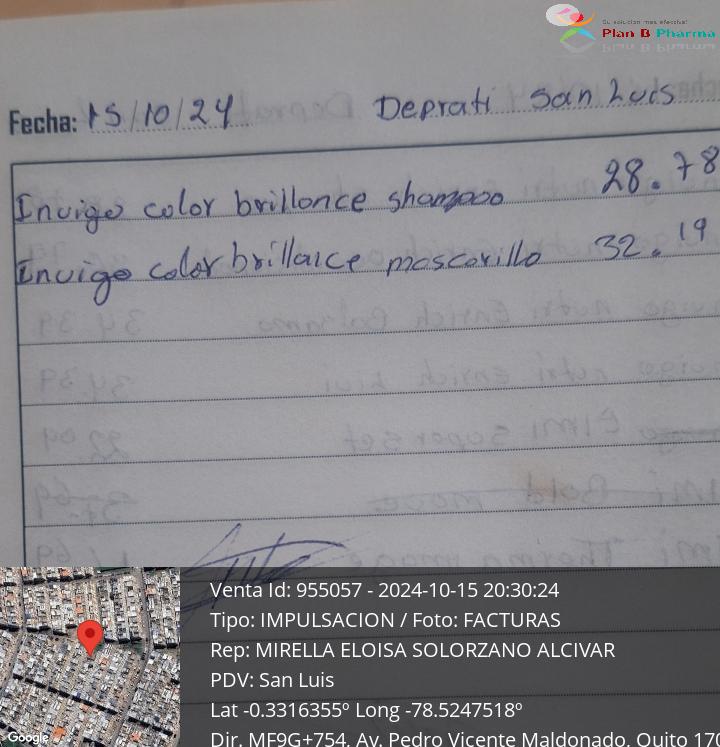 Su solucion mas efectiva!
Plan B Pharma
Fecha: 15/10/24 Deprati San Luis
Invigo color brillonce shampoo 28.78
Invigo color brillaice mascarilla 32.19
Venta Id: 955057 - 2024-10-15 20:30:24
Tipo: IMPULSACION / Foto: FACTURAS
Rep: MIRELLA ELOISA SOLORZANO ALCIVAR
PDV: San Luis
Lat -0.3316355º Long -78.5247518º
Dir. MF9G+754, Av. Pedro Vicente Maldonado, Quito 170
Google